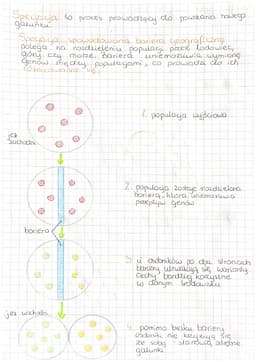 Specjacja to proces prowadzący do powstania nowego
gatunku.
Specjacja spowodowana barierą geograficzną
polega na rozdzieleniu populacji przez lodowiec,
góry czy morze. bariera uniemożliwia wymianę
genów między populacjami, co prowadzi do ich
różnicowania się.
1. populacja wyjściowa
2. populacja zostaje rozdzielona
barierą, która uniemożliwia
przepływ genów
bariera
3. u osobników po obu stronach
bariery utrwalają się warianty
cechy bardziej korzystne
w danym środowisku
4. pomimo braku bariery
osobniki nie krzyżują się
ze sobą - stanowią odrębne
gatunki